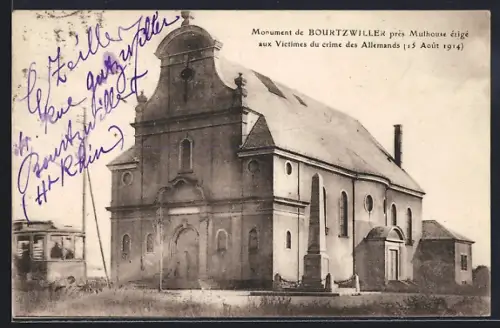 Monument de BOURTZWILLER près Mulhouse érigé
aux Victimes du crime des Allemands (15 Août 1914)
Zeiller
rue gutzwiller
Bourtzwiller
(Ht Rhin)